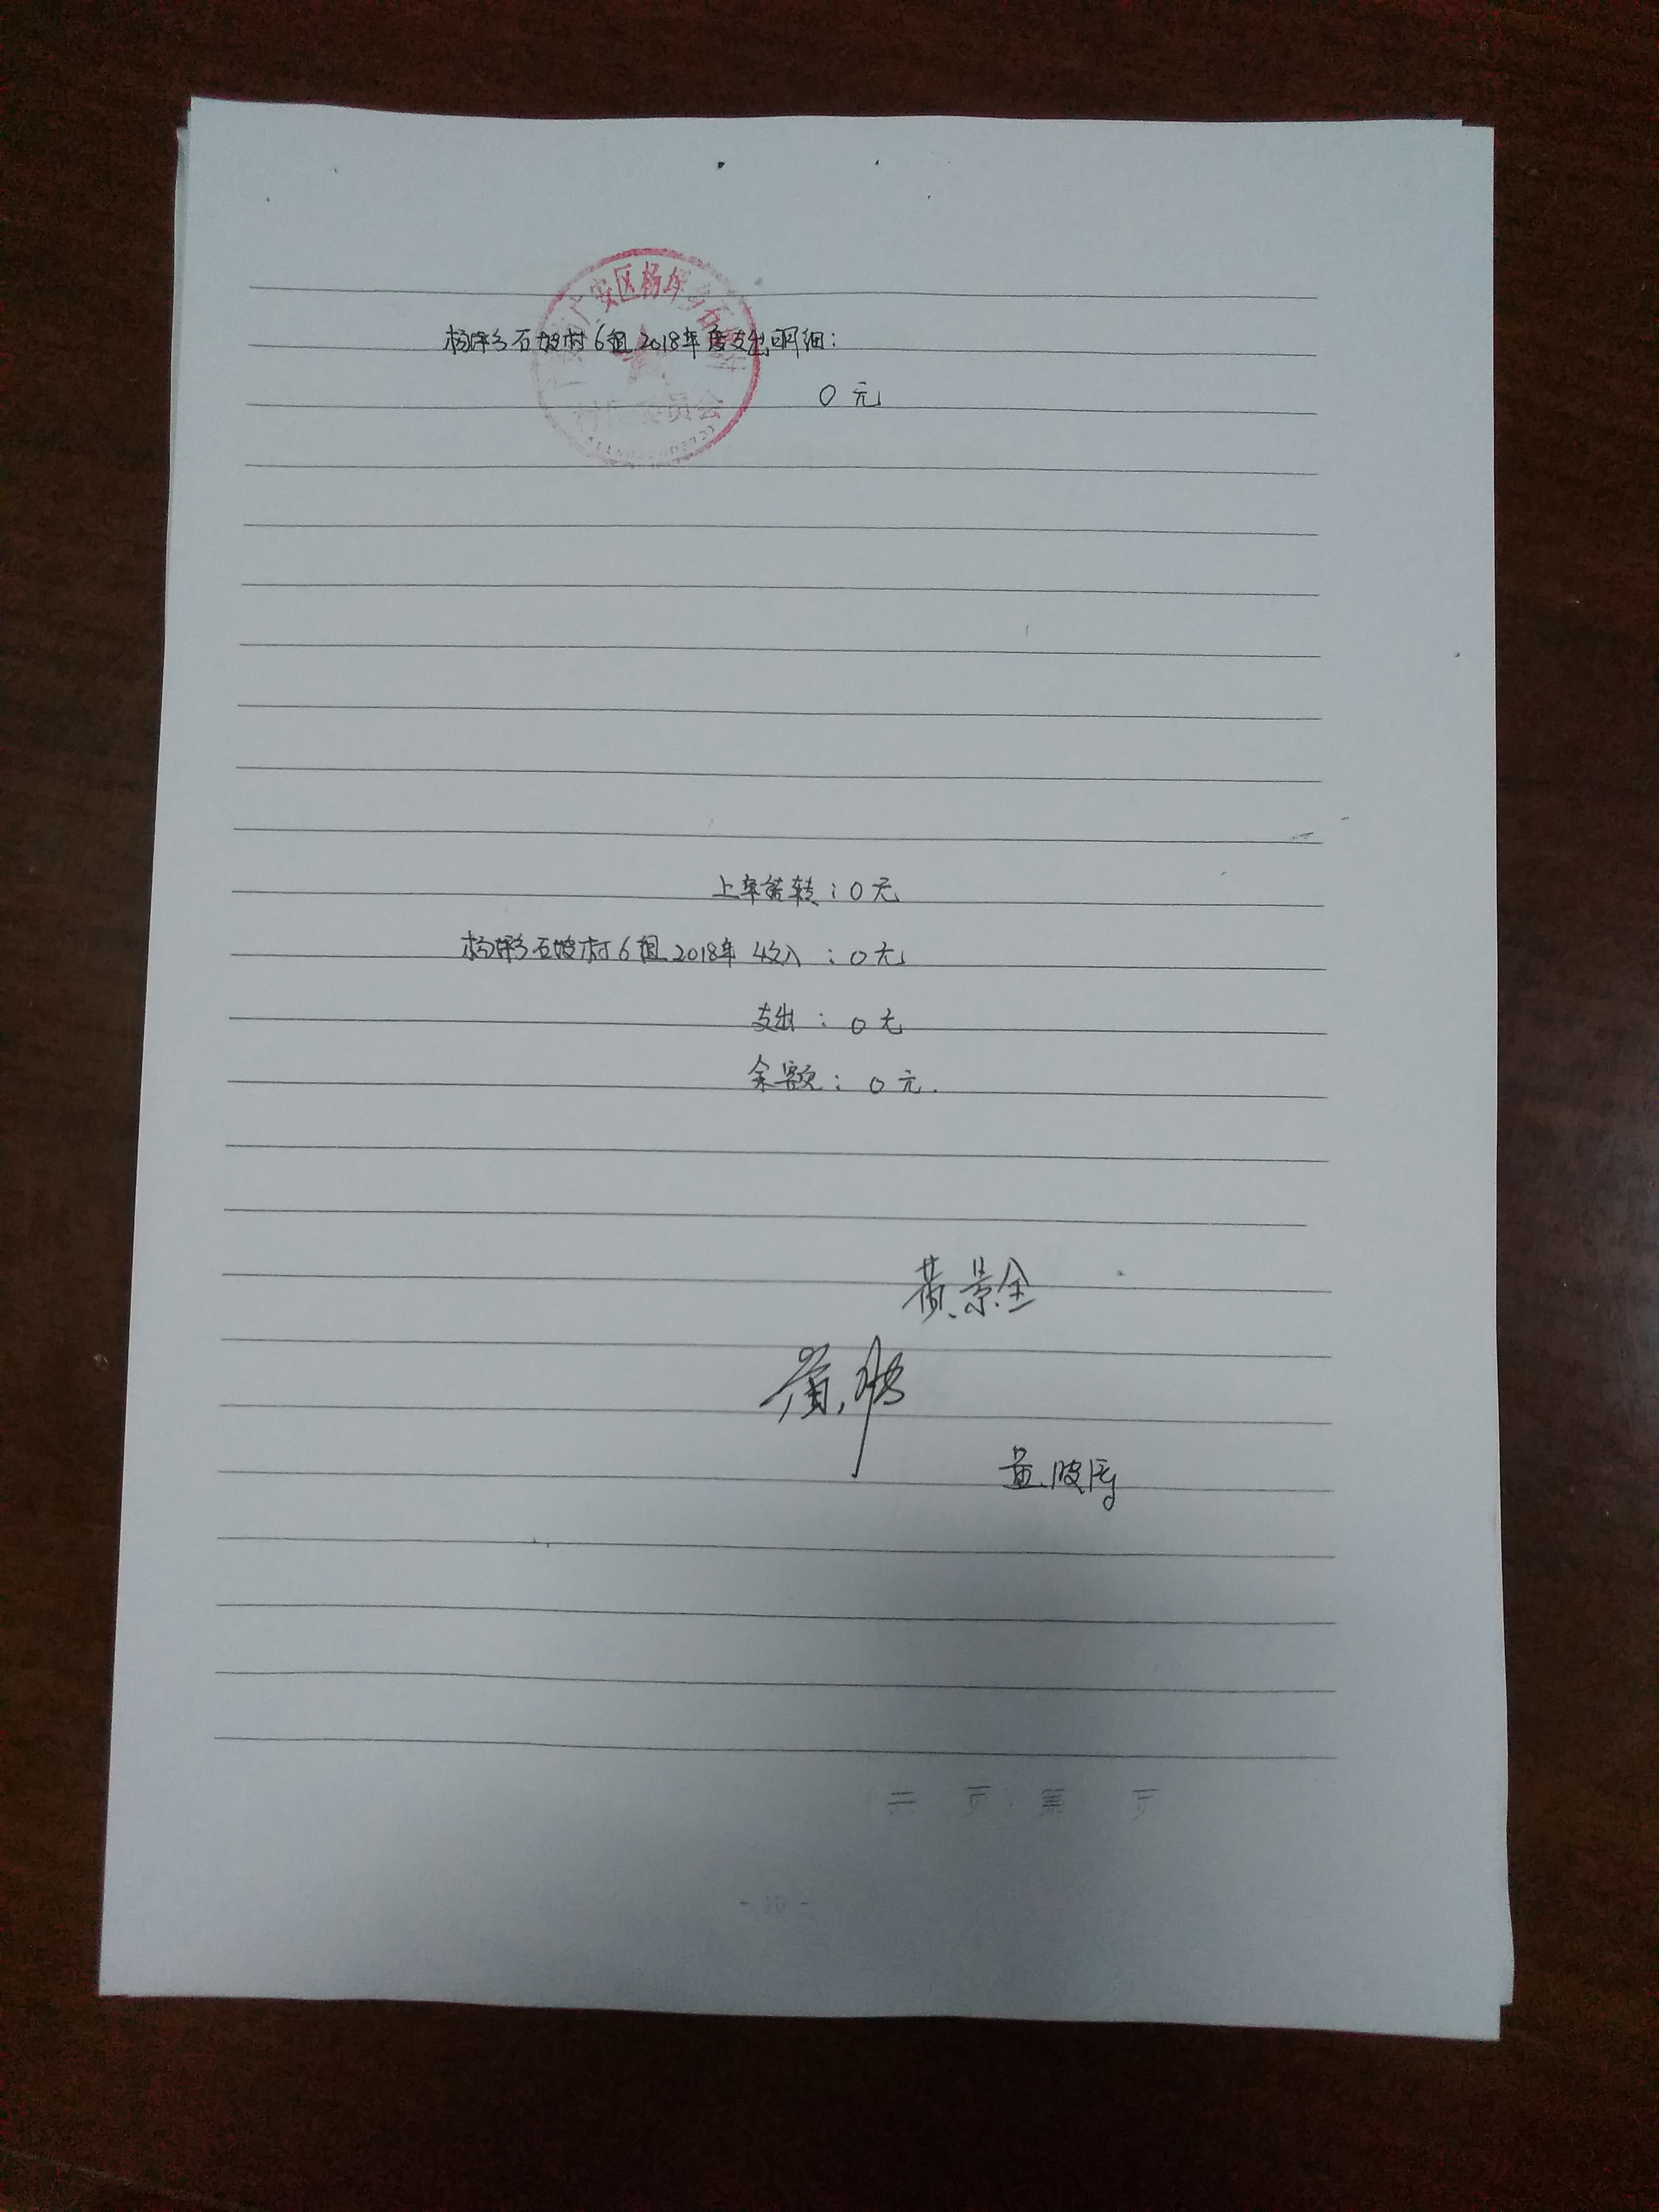 广安区杨坪乡石
村民委员会
杨坪乡石坡村6组2018年度支出明细:
0元
上年结转:0元
杨坪乡石坡村6组2018年收入:0元
支出:0元
余额:0元.
黄景全
共 页 第 页
- 10 -